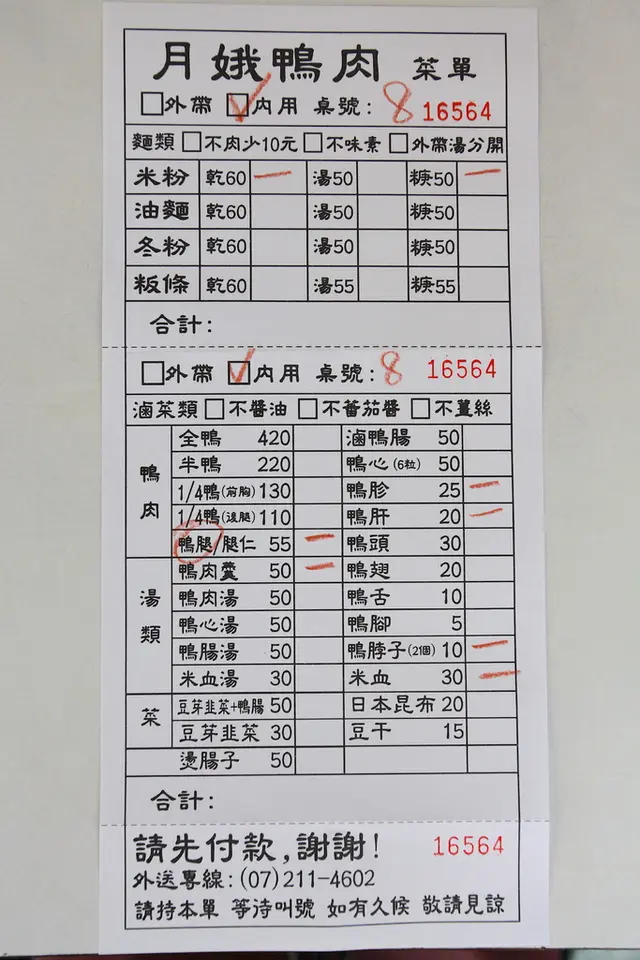 月娥鴨肉 菜單
□外帶 ☑內用 桌號:8 16564
麵類 □不肉少10元 □不味素 □外帶湯分開
米粉 乾60 一 湯50 糖50 一
油麵 乾60 湯50 糖50
冬粉 乾60 湯50 糖50
粄條 乾60 湯55 糖55
合計:
□外帶 ☑內用 桌號:8 16564
滷菜類 □不醬油 □不蕃茄醬 □不薑絲
鴨肉
全鴨 420 滷鴨腸 50
半鴨 220 鴨心(6粒) 50
1/4鴨(前胸)130 鴨胗 25 一
1/4鴨(後腿)110 鴨肝 20 一
鴨腿/腿仁 55 一 鴨頭 30
湯類
鴨肉羹 50 一 鴨翅 20
鴨肉湯 50 鴨舌 10
鴨心湯 50 鴨腳 5
鴨腸湯 50 鴨脖子(2個) 10 一
米血湯 30 米血 30 一
菜
豆芽韭菜+鴨腸 50 日本昆布 20
豆芽韭菜 30 豆干 15
燙腸子 50
合計:
請先付款,謝謝! 16564
外送專線:(07)211-4602
請持本單 等待叫號 如有久候 敬請見諒